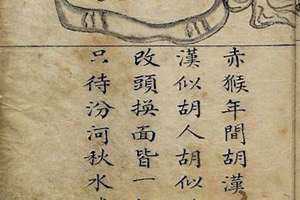 赤猴年間胡漢
漢似胡人胡似
改頭換面皆一
只待汾河秋水